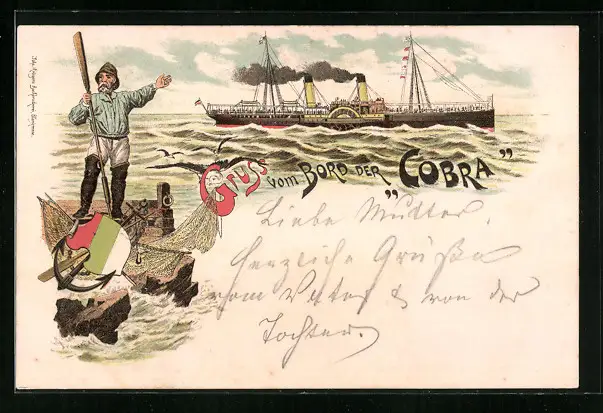 Gruss vom Bord der „Cobra”
Liebe Mutter.
Herzliche Grüße
vom Vater & von der
Tochter.